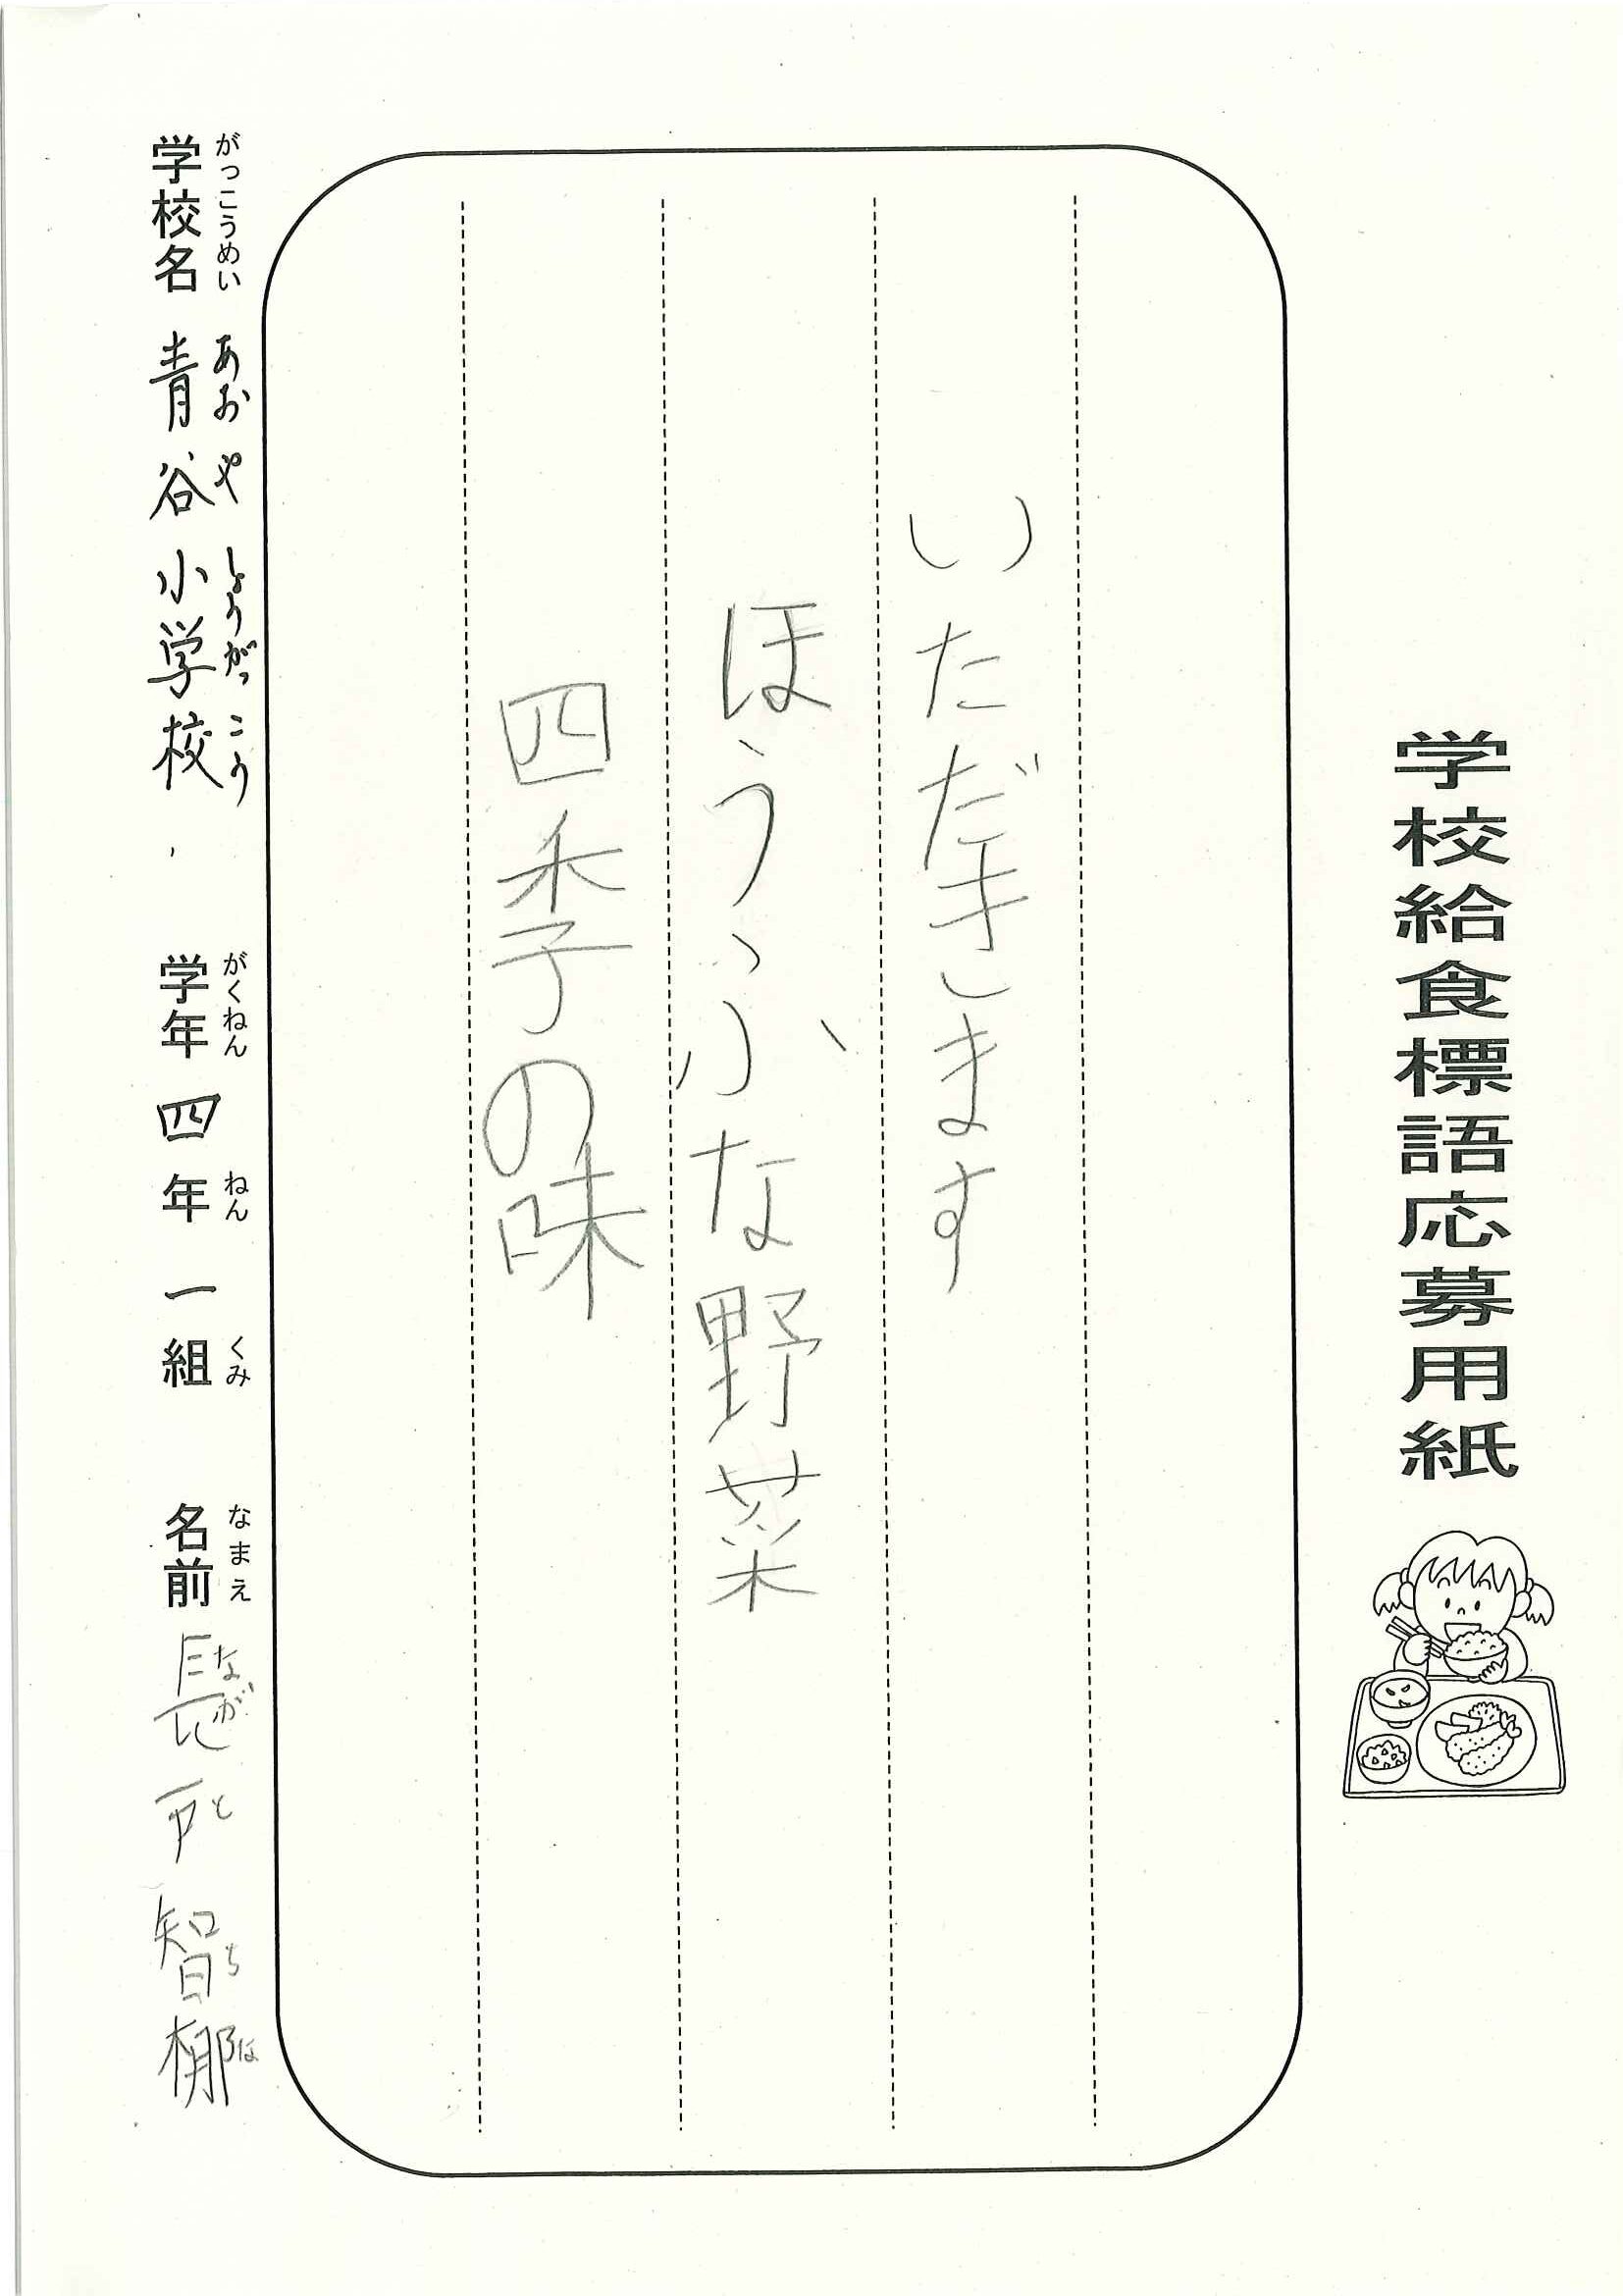 学校給食標語応募用紙
いただきます
ほうふな野菜
四季の味
がっこうめい
学校名
あおやしょうがっこう
青谷小学校
がくねん
学年
ねん
四年
くみ
一組
なまえ
名前
ながとちな
長戸智梛